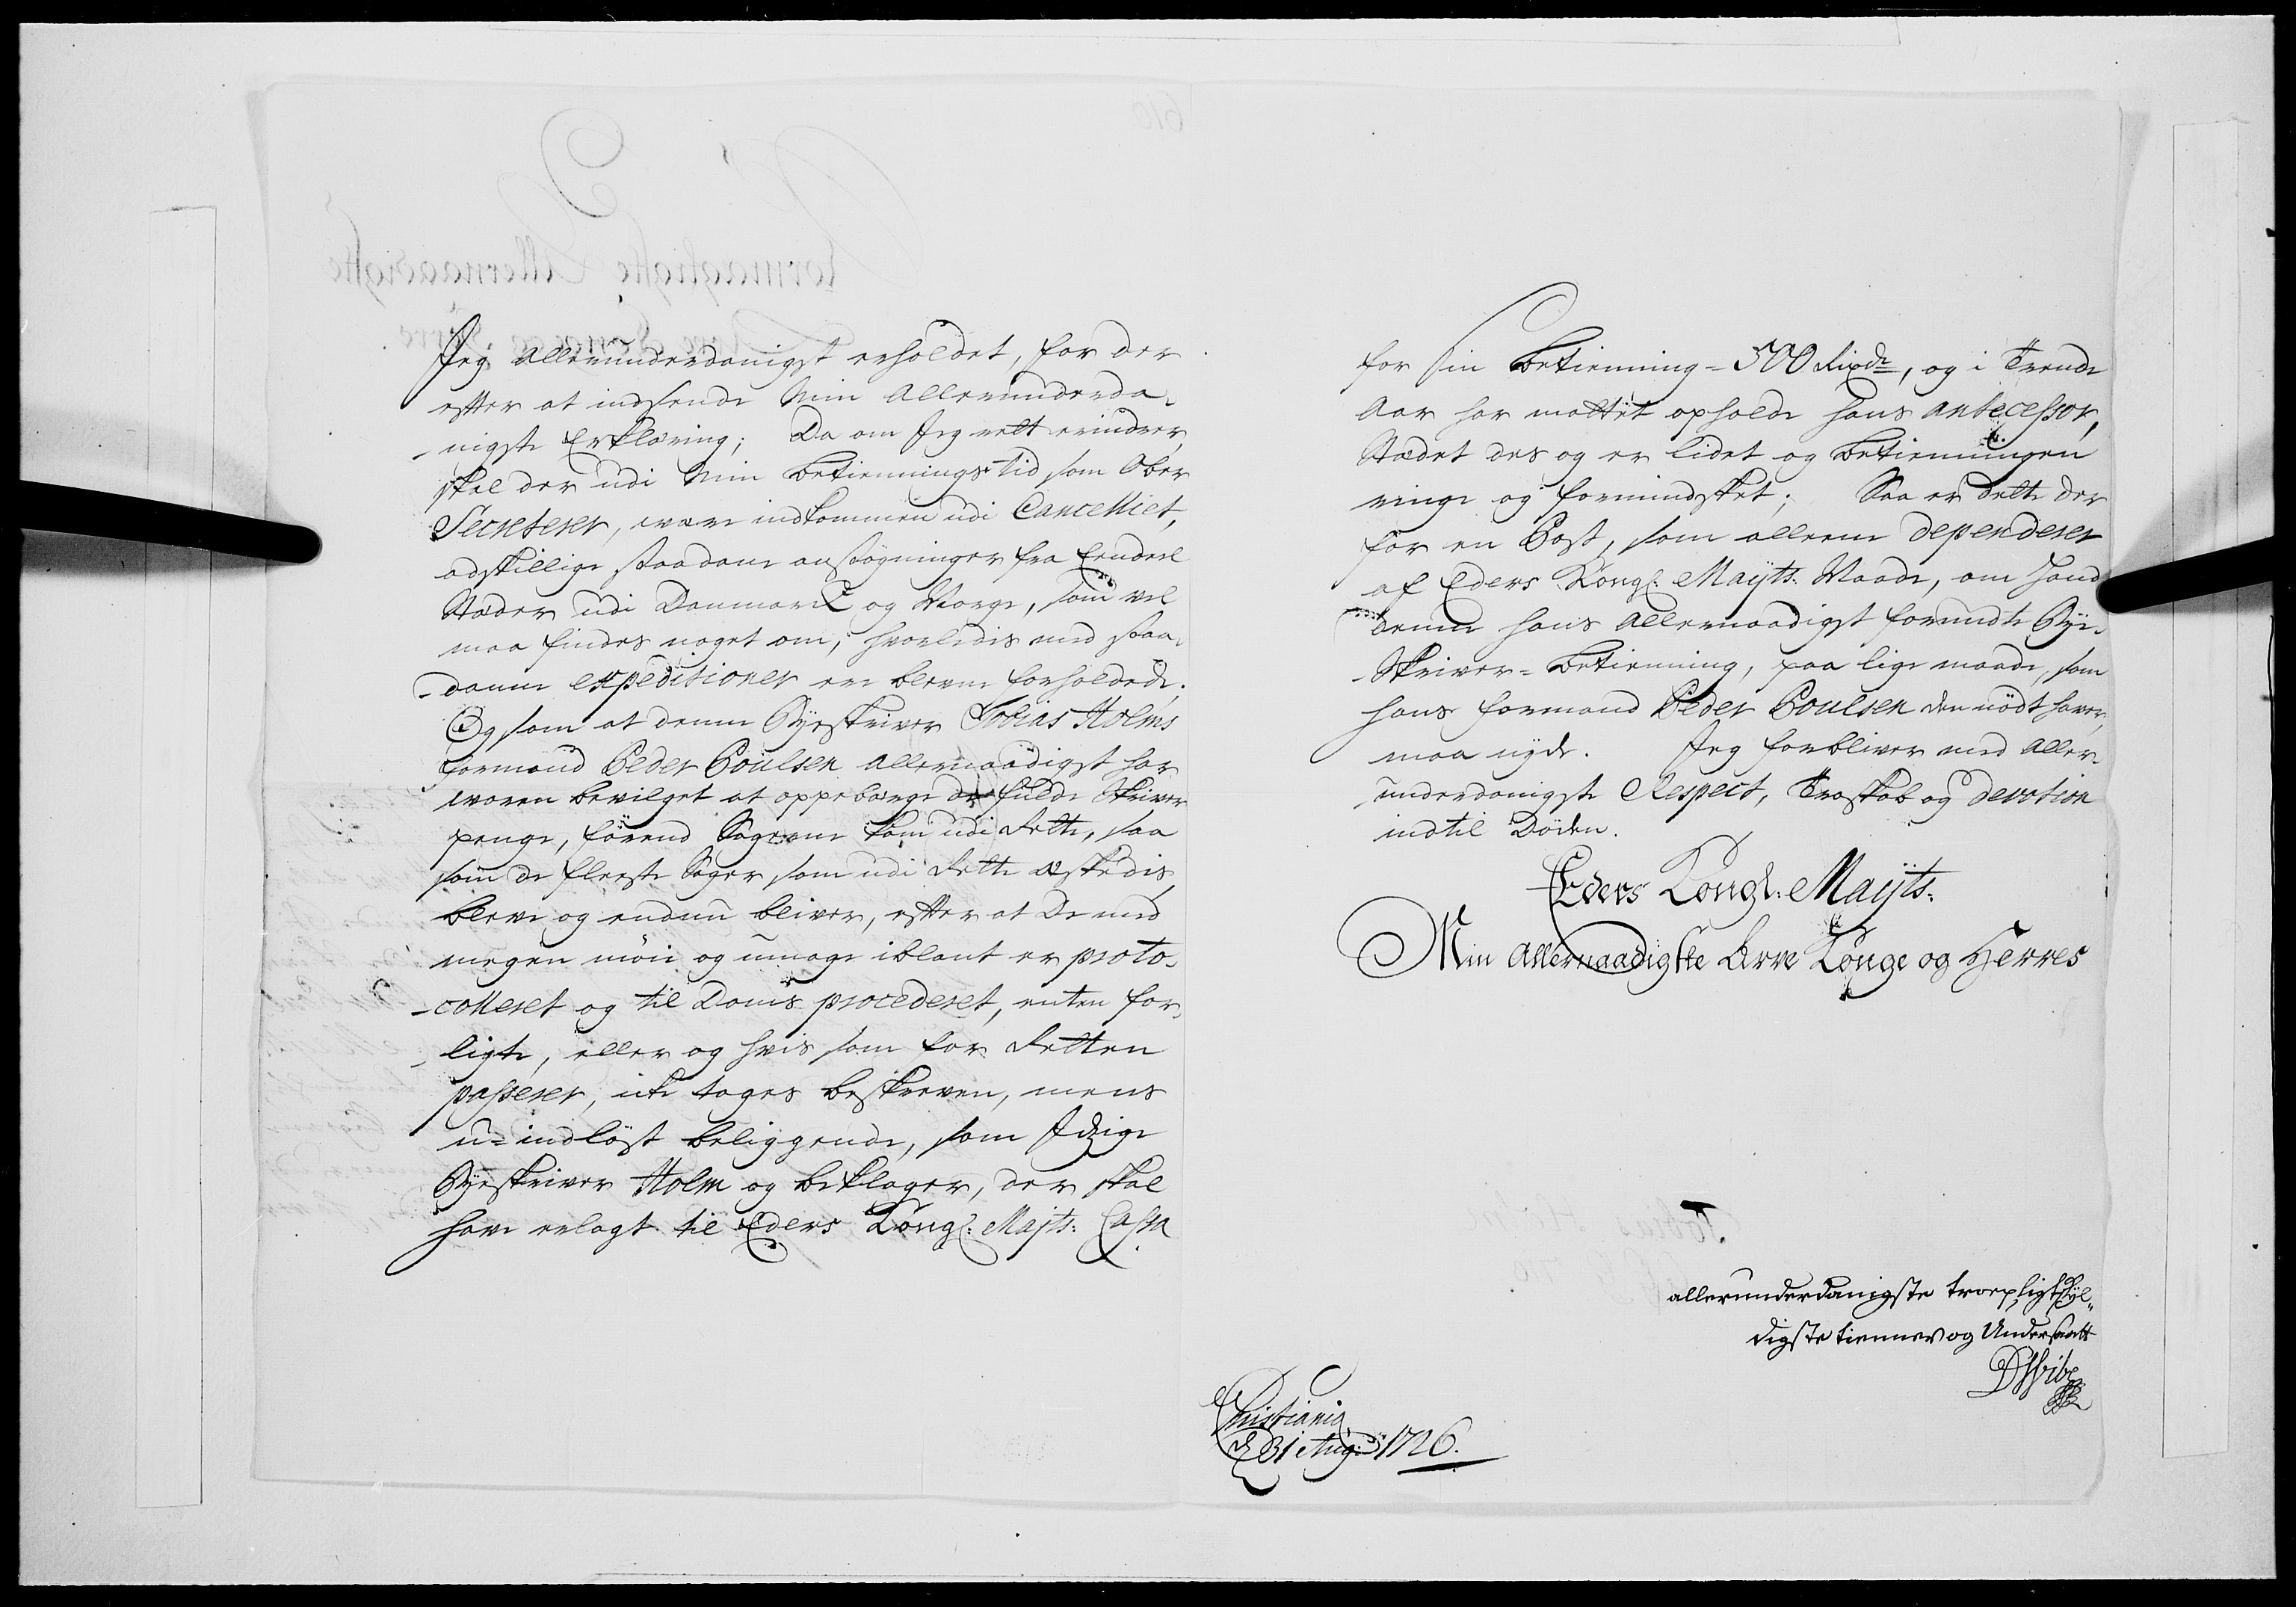 Jeg allerunderdanigst erholdet, for der
efter at indsende min allerunderda-
-nigste Erklæring; Da om Jeg rett erindrer,
skal der udi min betiennings tid som Ober
Secreterer, være indkommen udi Cancelliet,
adskillige saadane ansøgninger fra Eendeel
Stæder udi Danmarck og Norge, som vel
maa findes noget om, hvorledis med saa-
-danne expeditioner ere blevne forholdede.
Og som at denne Byeskriver Tobias Holms
formand Peder Poulsen allernaadigst har
været bevilget at oppebærge de fulde Skriver
penge, førend Sagerne kom udi Rette, saa
som de fleeste Sager som udi Rette æskedis
bleve og endnu bliver, efter at De med
megen møie og umage iblant er proto-
-colleret og til Doms procederet, enten for-
-ligte, eller og hvis som for Retten
passerer, icke tages beskreven, mens
u-indløst beliggende, som Itzige
Byeskriver Holm og beklager, der skal
have erlagt til Eders Kongl: Majts: Cassa
for sin betienning - 500 Rixdr, og i Trende
Aar har mottet opholde hans antecessor,
Stædet des og er lidet og betienningen
ringe og formindsket; Saa er dette der
for en Post, som alleene dependerer
af Eders Kongl: Mayts: Naade, om hand
denne hans allernaadigst forundte Bye-
-Skriver-betienning, paa lige maade, som
hans formand Peder Poulsen den nødt haver,
maa nyde. Jeg forbliver med aller-
underdanigste Respect, Troskab og devotion
indtil Døden.
Eders Kongl: Mayts:
Min allernaadigste Arve Konge og Herres
allerunderdanigste troepligtskyl-
digste tienner og Undersaatt
DVibe
Christiania
d 31 Aug: 1726.